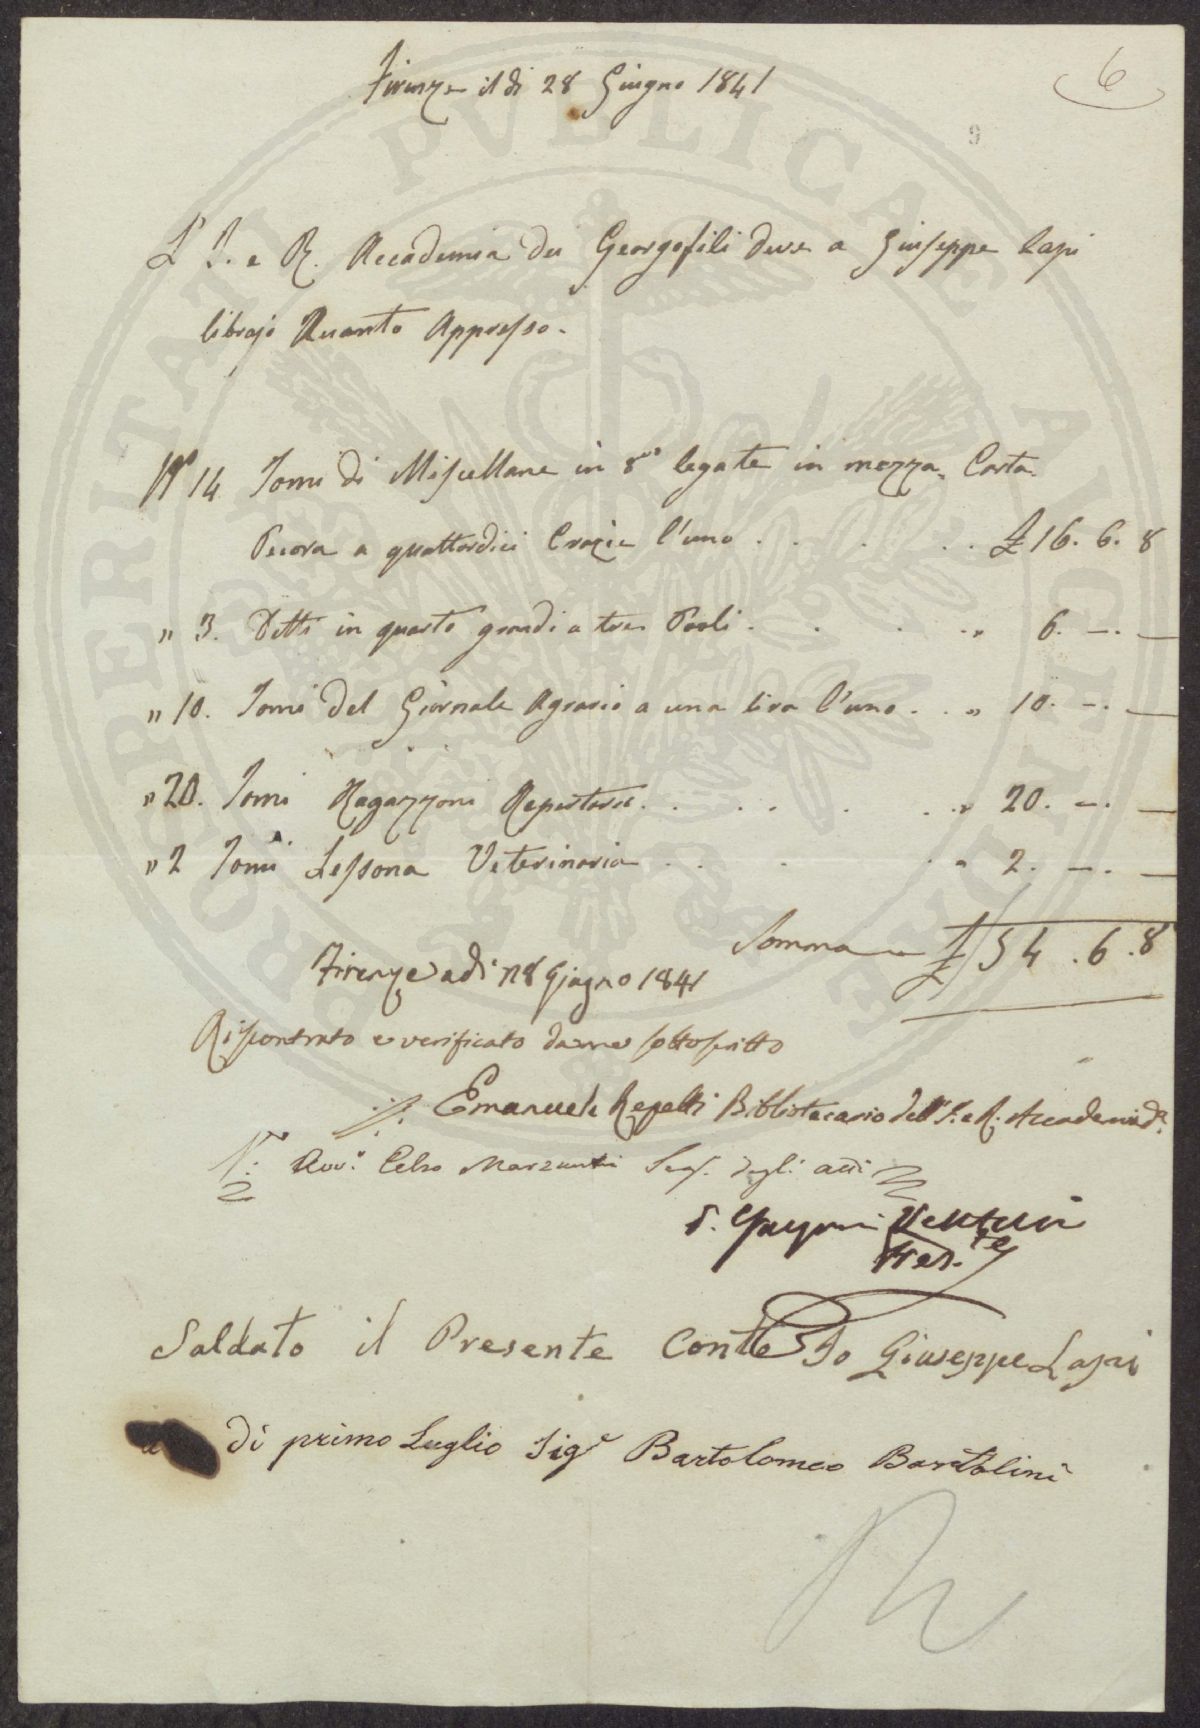 6
9
Firenze il dì 28 Giugno 1841
L' I. e R. Accademia dei Georgofili deve a Giuseppe Lapi
librajo Quanto Appresso.
N° 14 Tomi di Miscellane in 8vo legate in mezza Carta
Pecora a quattordici Crazie l'uno . . . . . £ 16. 6. 8
" 3. Detti in quarto grandi a tre Paoli . . . . " 6. –. –
" 10. Tomi del Giornale Agrario a una lira l'uno . . " 10. –. –
" 20. Tomi Ragazzoni Repertorio . . . . . . " 20. –. –
" 2 Tomi Lessona Veterinaria . . . . " 2. –. –
Somma £ 54. 6. 8
Firenze adì 28 Giugno 1841
Riscontrato e verificato da me sottoscritto
Emanuele Repetti Bibliotecario dell'I. e R. Accademia
V: Avv.° Celso Marzucchi Seg. degli atti
V. Venturi
Pres.te
Saldato il Presente Conto Io Giuseppe Lapi
dì primo Luglio Sigr Bartolomeo Bartolini
PROSPERITATI PVBLICAE AVGENDAE